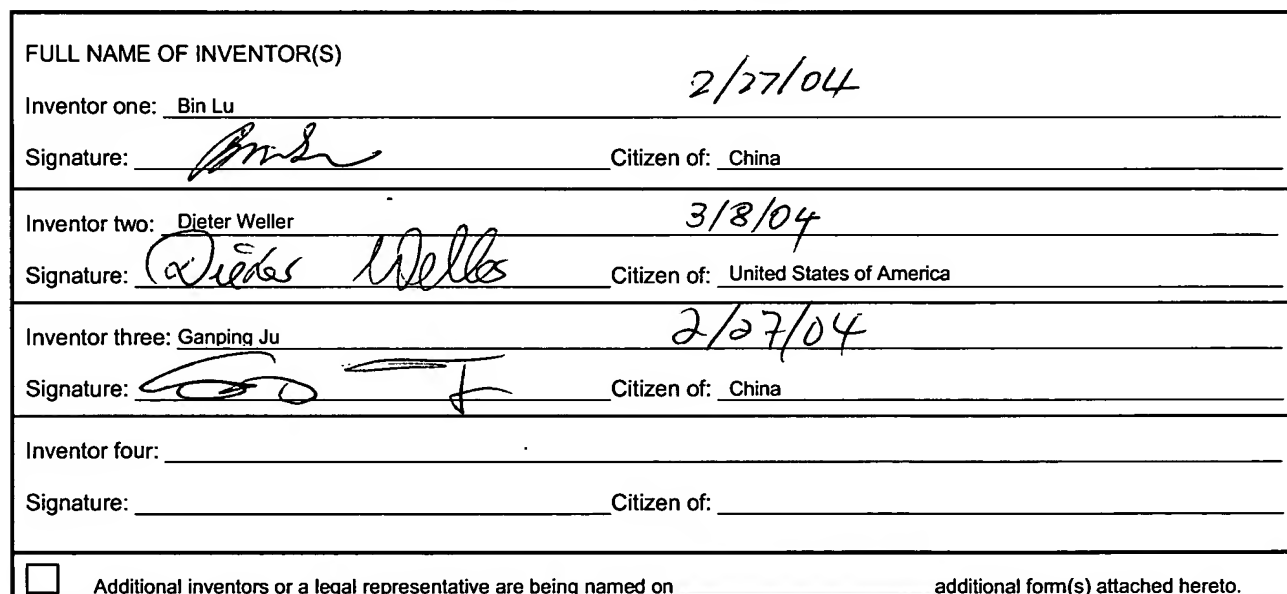 FULL NAME OF INVENTOR(S)
Inventor one: Bin Lu 2/27/04
Signature: Citizen of: China
Inventor two: Dieter Weller 3/8/04
Signature: Dieter Weller Citizen of: United States of America
Inventor three: Ganping Ju 2/27/04
Signature: Citizen of: China
Inventor four:
Signature: Citizen of:
Additional inventors or a legal representative are being named on additional form(s) attached hereto.